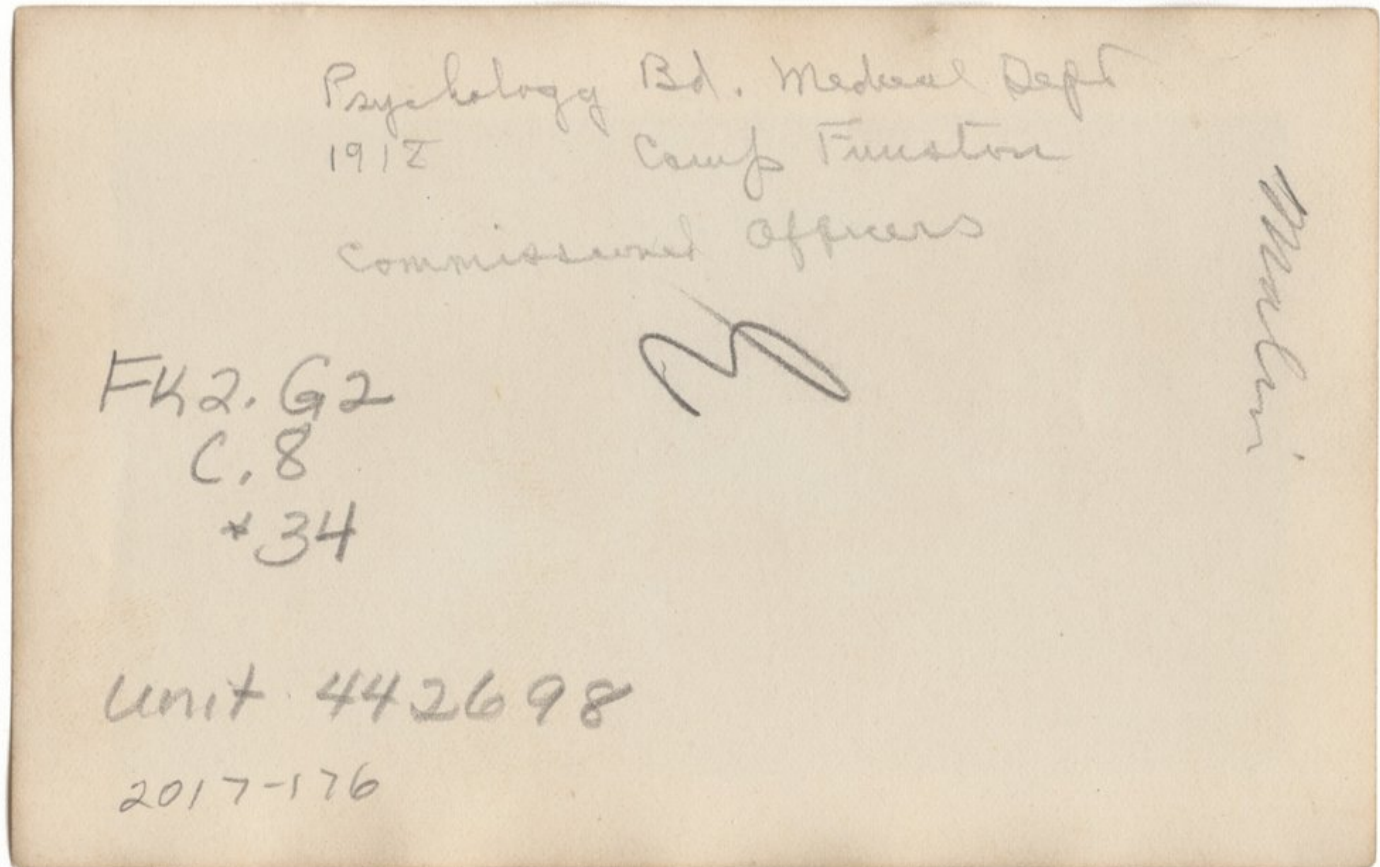 Psychology Bd. Medical Dept
1918 Camp Funston
Commissioned Officers
FK2.G2
C.8
*34
Unit 442698
2017-176
Malin